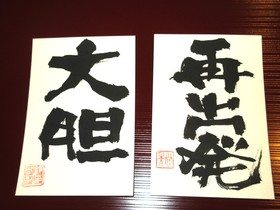 大胆
再出発